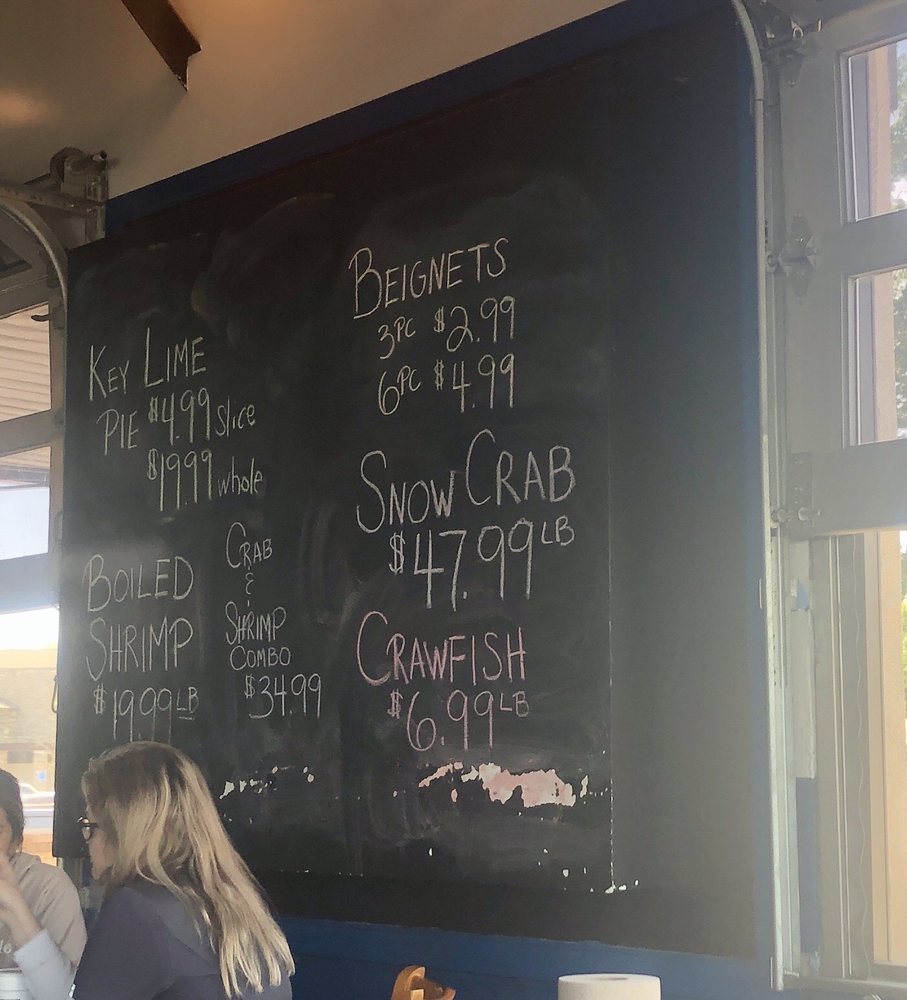 KEY LIME
PIE $4.99 slice
$19.99 whole
BOILED
SHRIMP
$19.99 LB
CRAB
&
SHRIMP
COMBO
$34.99
BEIGNETS
3PC $2.99
6PC $4.99
SNOW CRAB
$47.99 LB
CRAWFISH
$6.99 LB